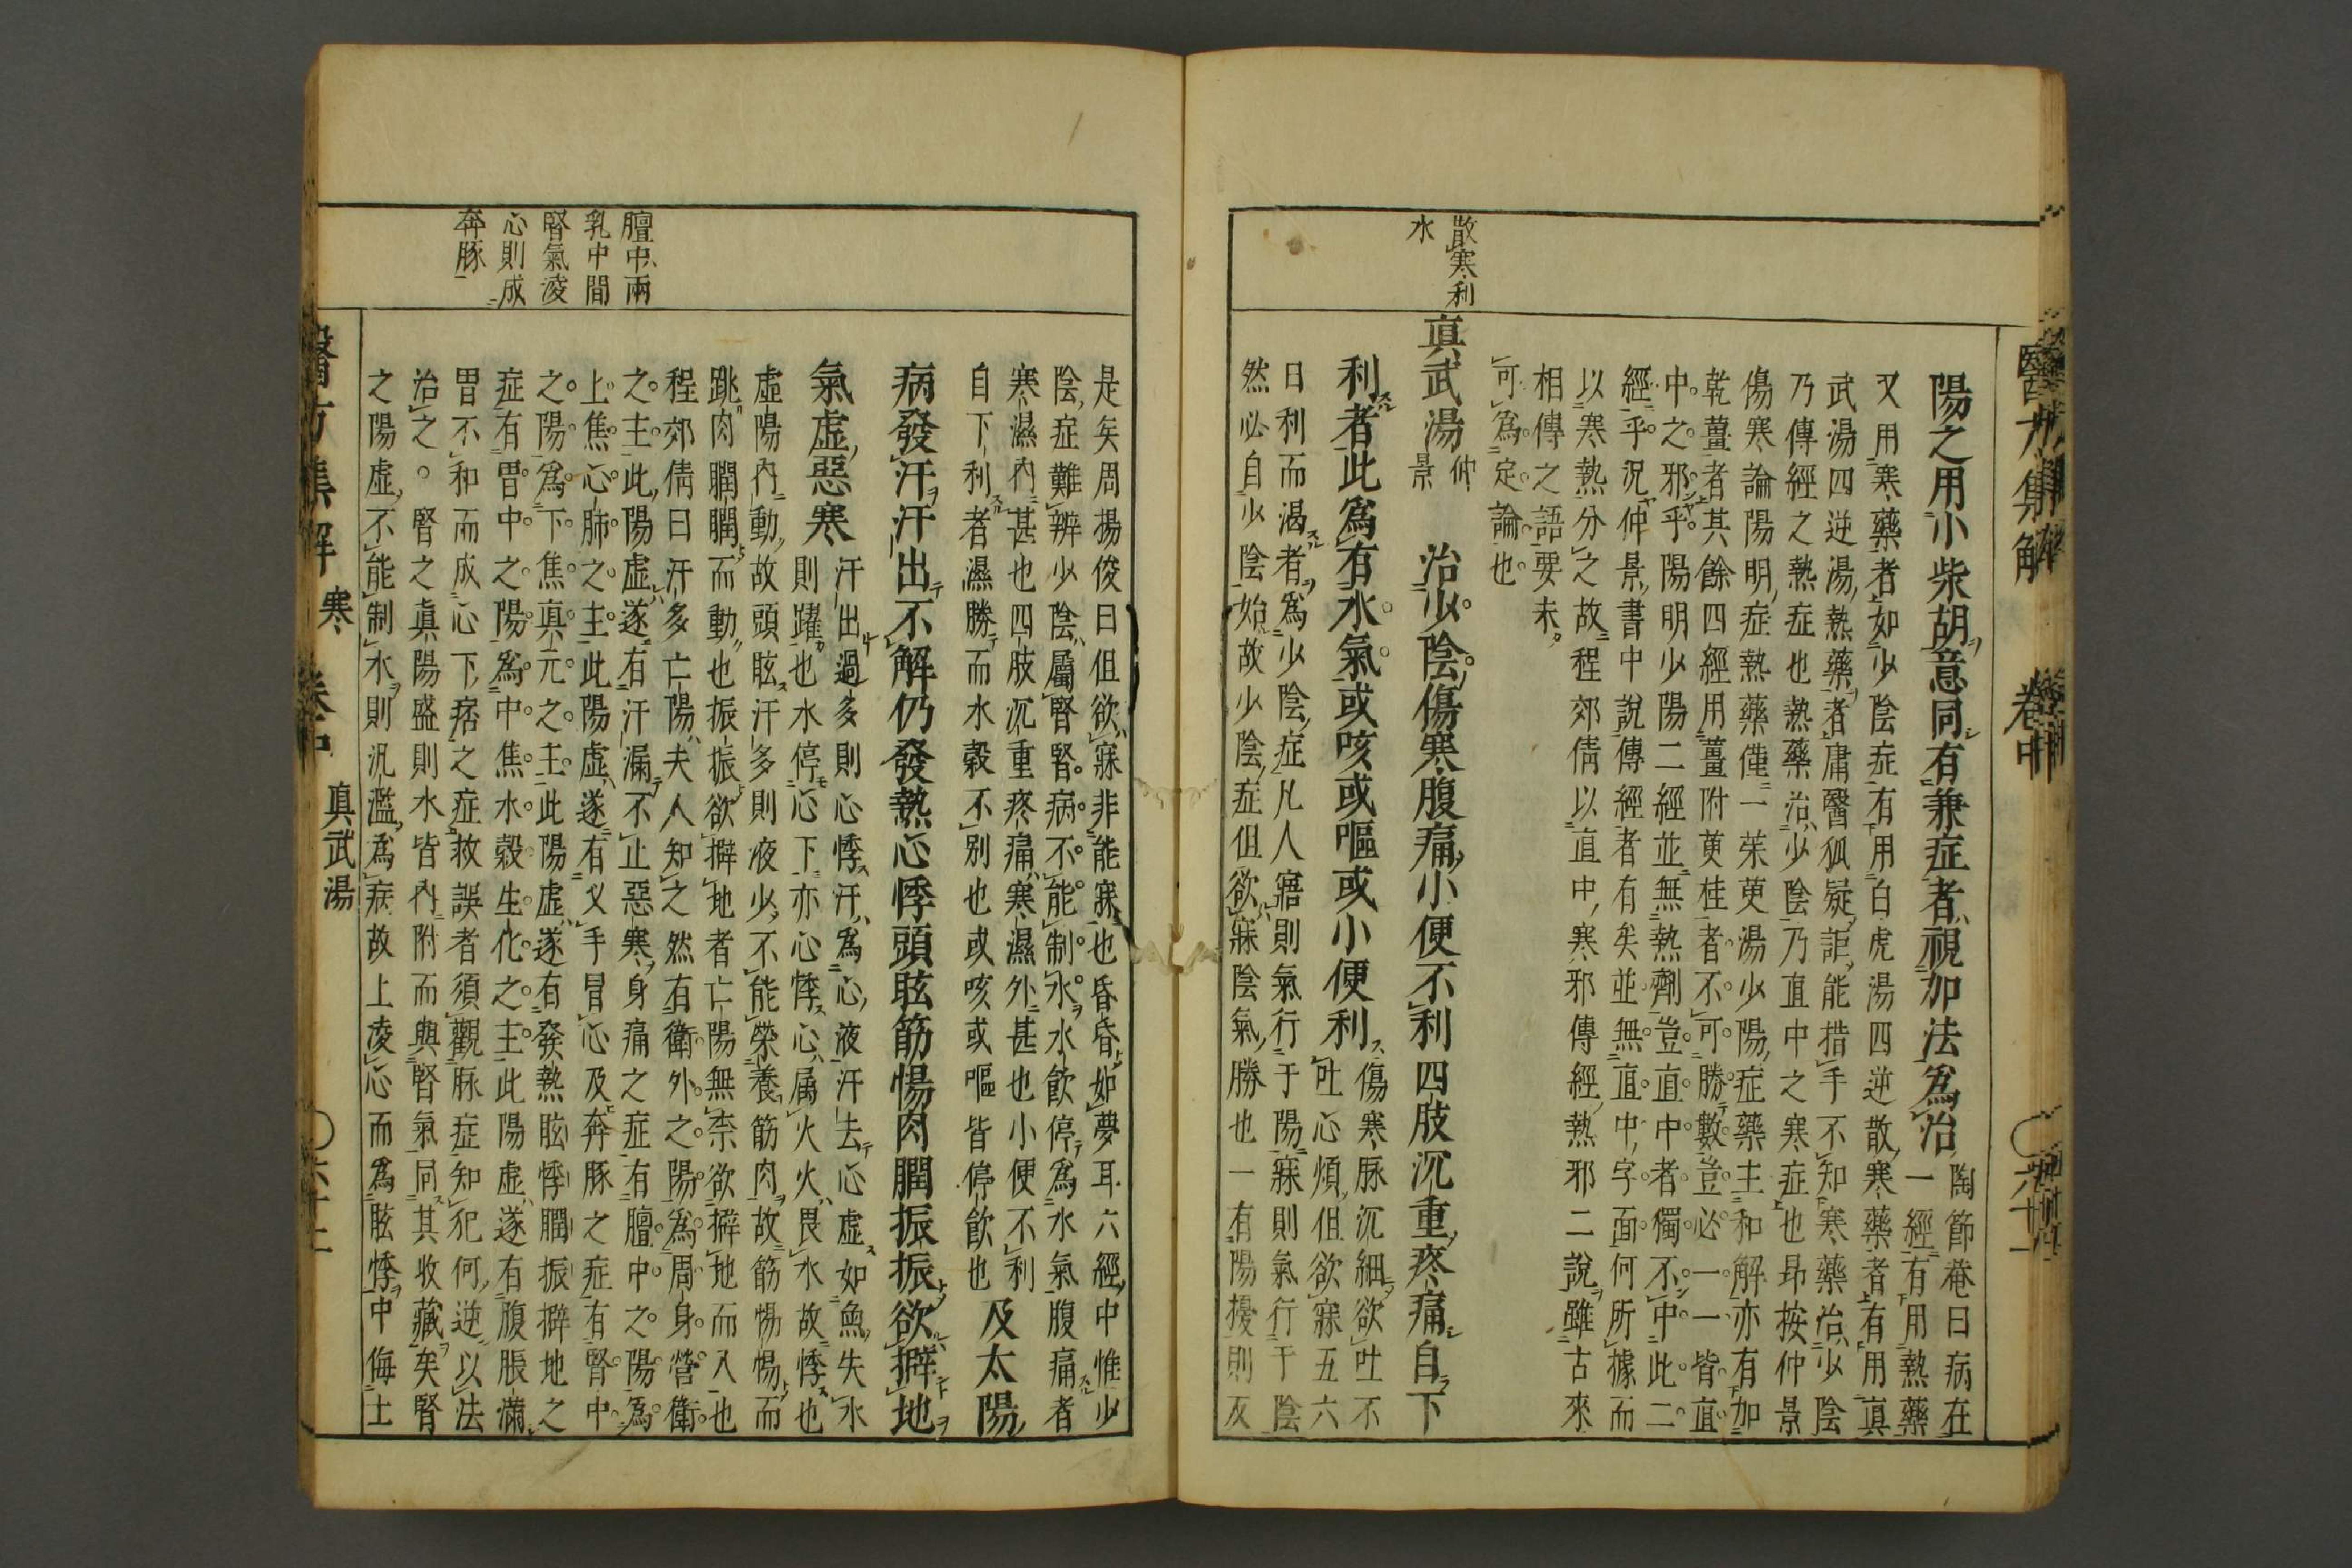 醫方集解 卷中 六十一
散寒利
水
陽之用小柴胡意同有兼症者視加法為治陶節菴曰病在
一經有用熱藥
又用寒藥者如少陰症有用白虎湯四逆散寒藥者有用眞
武湯四逆湯熱藥者庸醫狐疑詎能措手不知寒藥治少陰
乃傳經之熱症也熱藥治少陰乃直中之寒症也昂按仲景
傷寒論陽明症熱藥僅一茱萸湯少陽症藥主和解亦有加
乾薑者其餘四經用薑附萸桂者不可勝數豈必一一皆直
中之邪乎陽明少陽二經並無熱劑豈直中者獨不中此二
經乎況仲景書中說傳經者有矣並無直中字面何所據而
以寒熱分之故程郊倩以直中寒邪傳經熱邪二說雖古來
相傳之語要未
可為定論也
眞武湯仲
景 治少陰傷寒腹痛小便不利四肢沉重疼痛自下
利者此為有水氣或咳或嘔或小便利傷寒脉沉細欲吐不
吐心煩但欲寐五六
日利而渴者為少陰症凡人寤則氣行于陽寐則氣行于陰
然必自少陰始故少陰症但欲寐陰氣勝也一有陽擾則反
膻中兩
乳中間
腎氣凌
心則成
奔豚
是矣周揚俊曰但欲寐非能寐也昏昏如夢耳六經中惟少
陰症難辨少陰屬腎腎病不能制水水飲停為水氣腹痛者
寒濕內甚也四肢沉重疼痛寒濕外甚也小便不利
自下利者濕勝而水穀不別也或咳或嘔皆停飲也及太陽
病發汗汗出不解仍發熱心悸頭眩筋惕肉瞤振振欲擗地
氣虛惡寒汗出過多則心悸汗為心液汗去心虛如魚失水
則躍也水停心下亦心悸心属火火畏水故悸也
虛陽內動故頭眩汗多則液少不能榮養筋肉故筋惕惕而
跳肉瞤瞤而動也振振欲擗地者亡陽無柰欲擗地而入也
程郊倩曰汗多亡陽夫人知之然有衛外之陽為周身營衛
之主此陽虛遂有汗漏不止惡寒身痛之症有膻中之陽為
上焦心肺之主此陽虛遂有叉手冒心及奔豚之症有腎中
之陽為下焦真元之主此陽虛遂有發熱眩悸瞤振擗地之
症有胃中之陽為中焦水穀生化之主此陽虛遂有腹脹滿
胃不和而成心下痞之症救誤者須觀脉症知犯何逆以法
治之。腎之眞陽盛則水皆內附而與腎氣同其收藏矣腎
之陽虛不能制水則汎濫為病故上凌心而為眩悸中侮土
醫方集解 寒 卷中 眞武湯 六十二